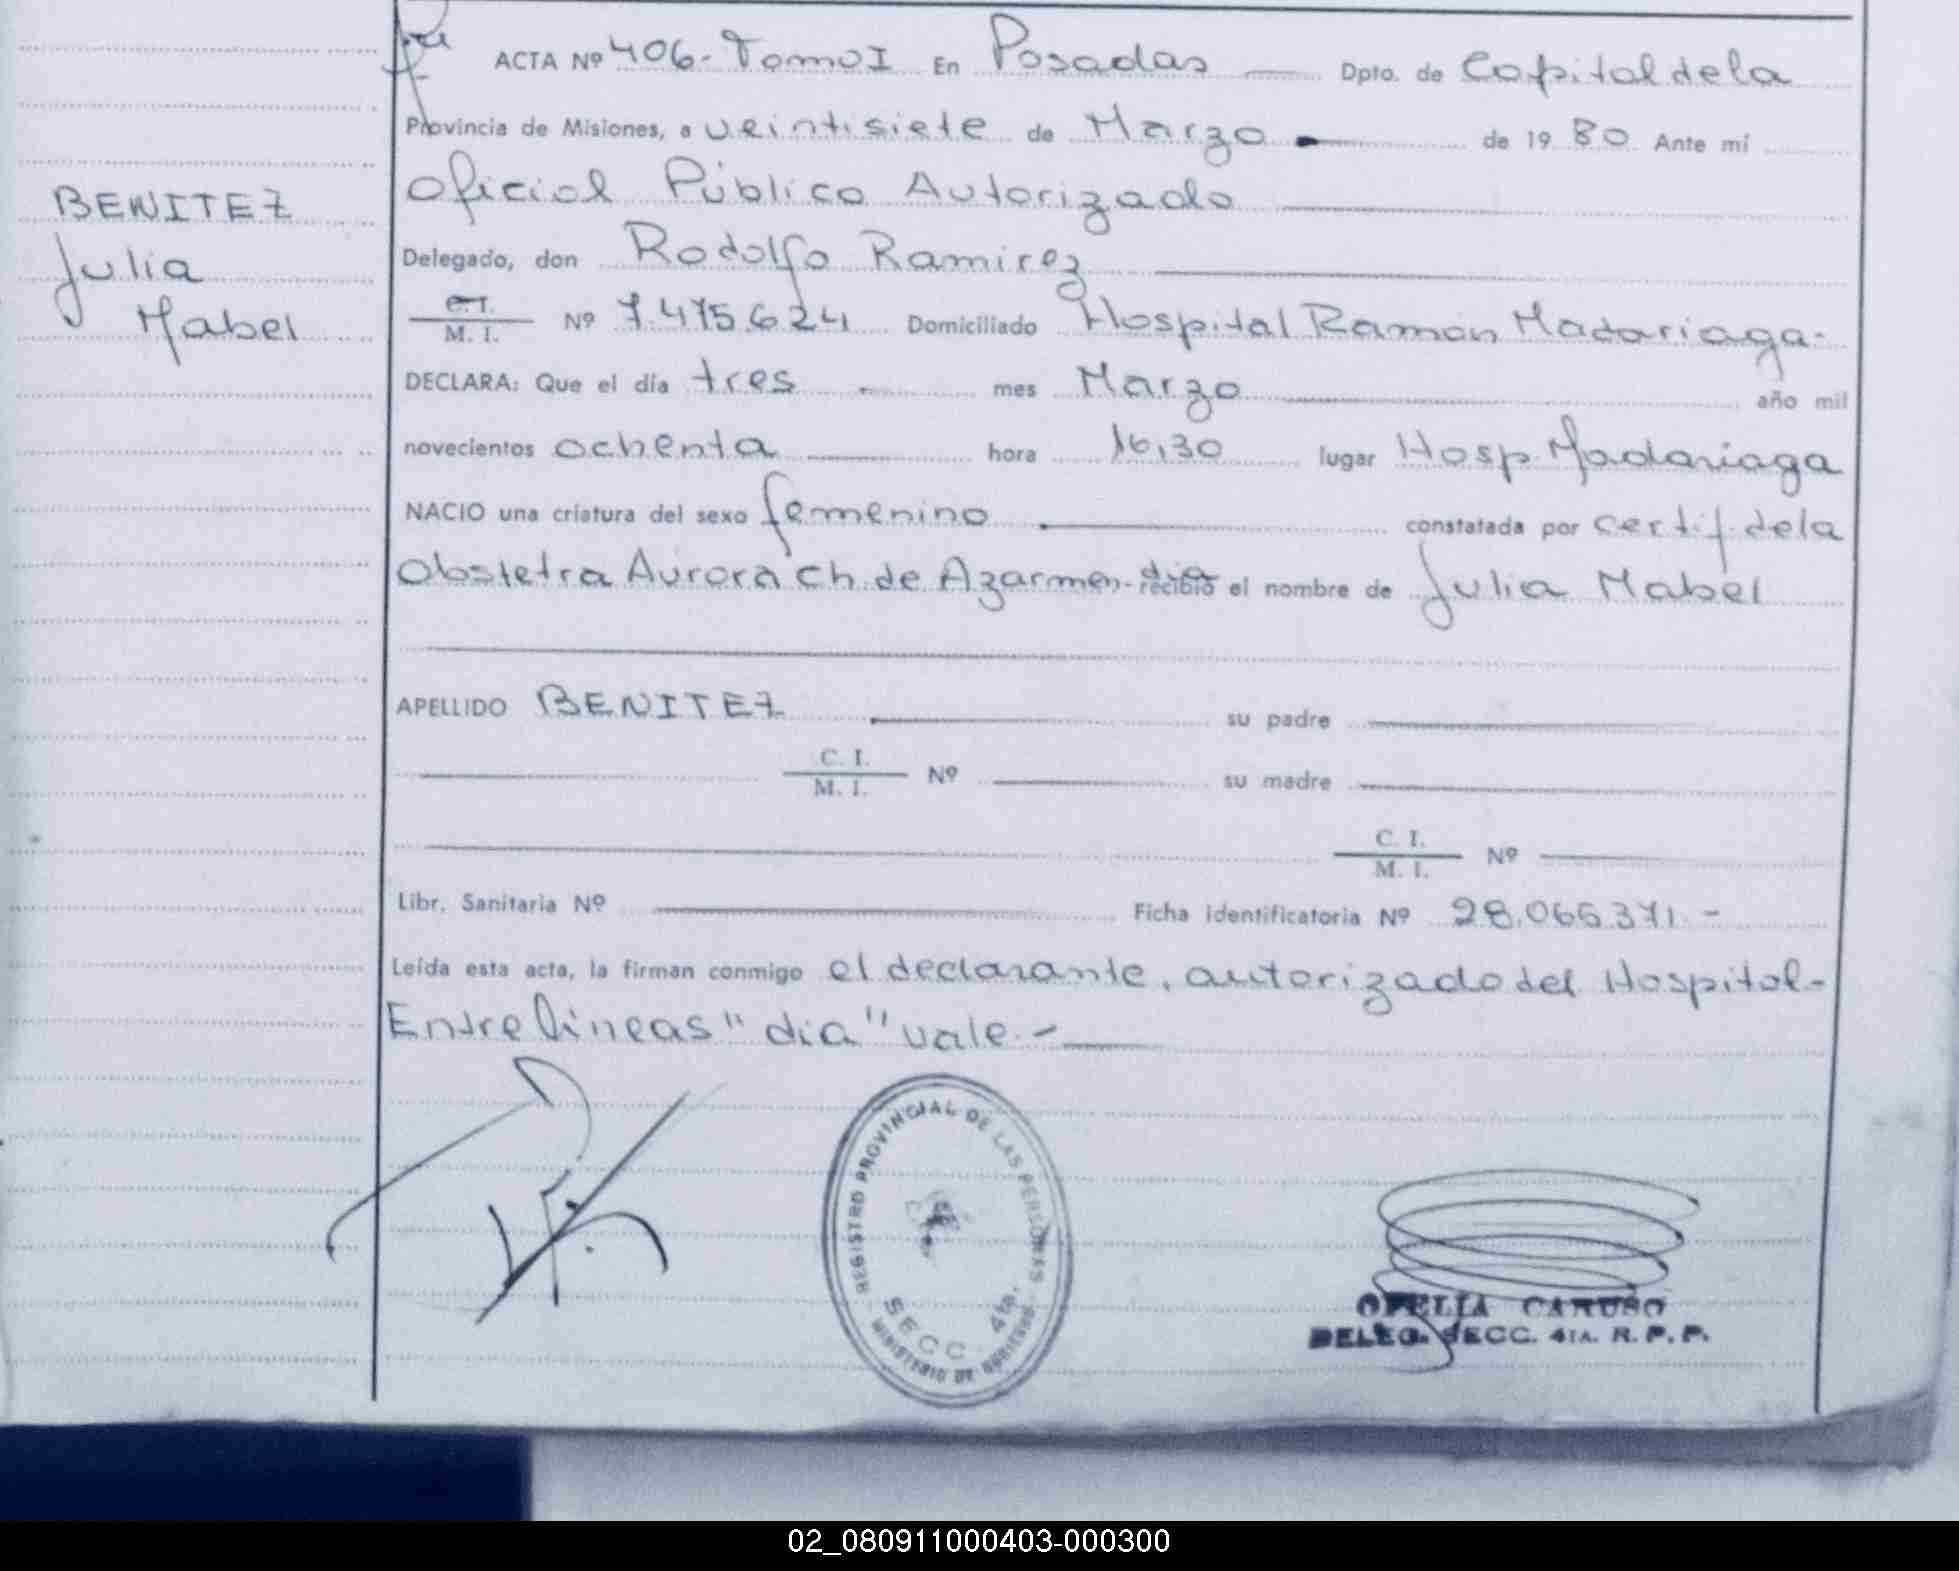 ACTA Nº 406- Tomo I En Posadas Dpto. de Capital de la
Provincia de Misiones, a veintisiete de Marzo de 1980 Ante mí
Oficial Público Autorizado
Delegado, don Rodolfo Ramirez
C. I.
M. I. Nº 7.475.624 Domiciliado Hospital Ramón Madariaga-
DECLARA: Que el día tres mes Marzo año mil
novecientos ochenta hora 16,30 lugar Hosp Madariaga
NACIO una criatura del sexo femenino constatada por certif de la
Obstetra Aurora Ch. de Azarmen- dia recibió el nombre de Julia Mabel
APELLIDO BENITEZ su padre
C. I.
M. I. Nº su madre
C. I.
M. I. Nº
Libr. Sanitaria Nº Ficha identificatoria Nº 28.066.371.-
Leída esta acta, la firman conmigo el declarante, autorizado del Hospital-
Entre líneas "dia" vale.-
BENITEZ
Julia
Mabel
REGISTRO PROVINCIAL DE LAS PERSONAS
SECC. 4ta.
MINISTERIO DE GOBIERNO
OFELIA CARUSO
DELEG. SECC. 4TA. R. P. P.
02_080911000403-000300